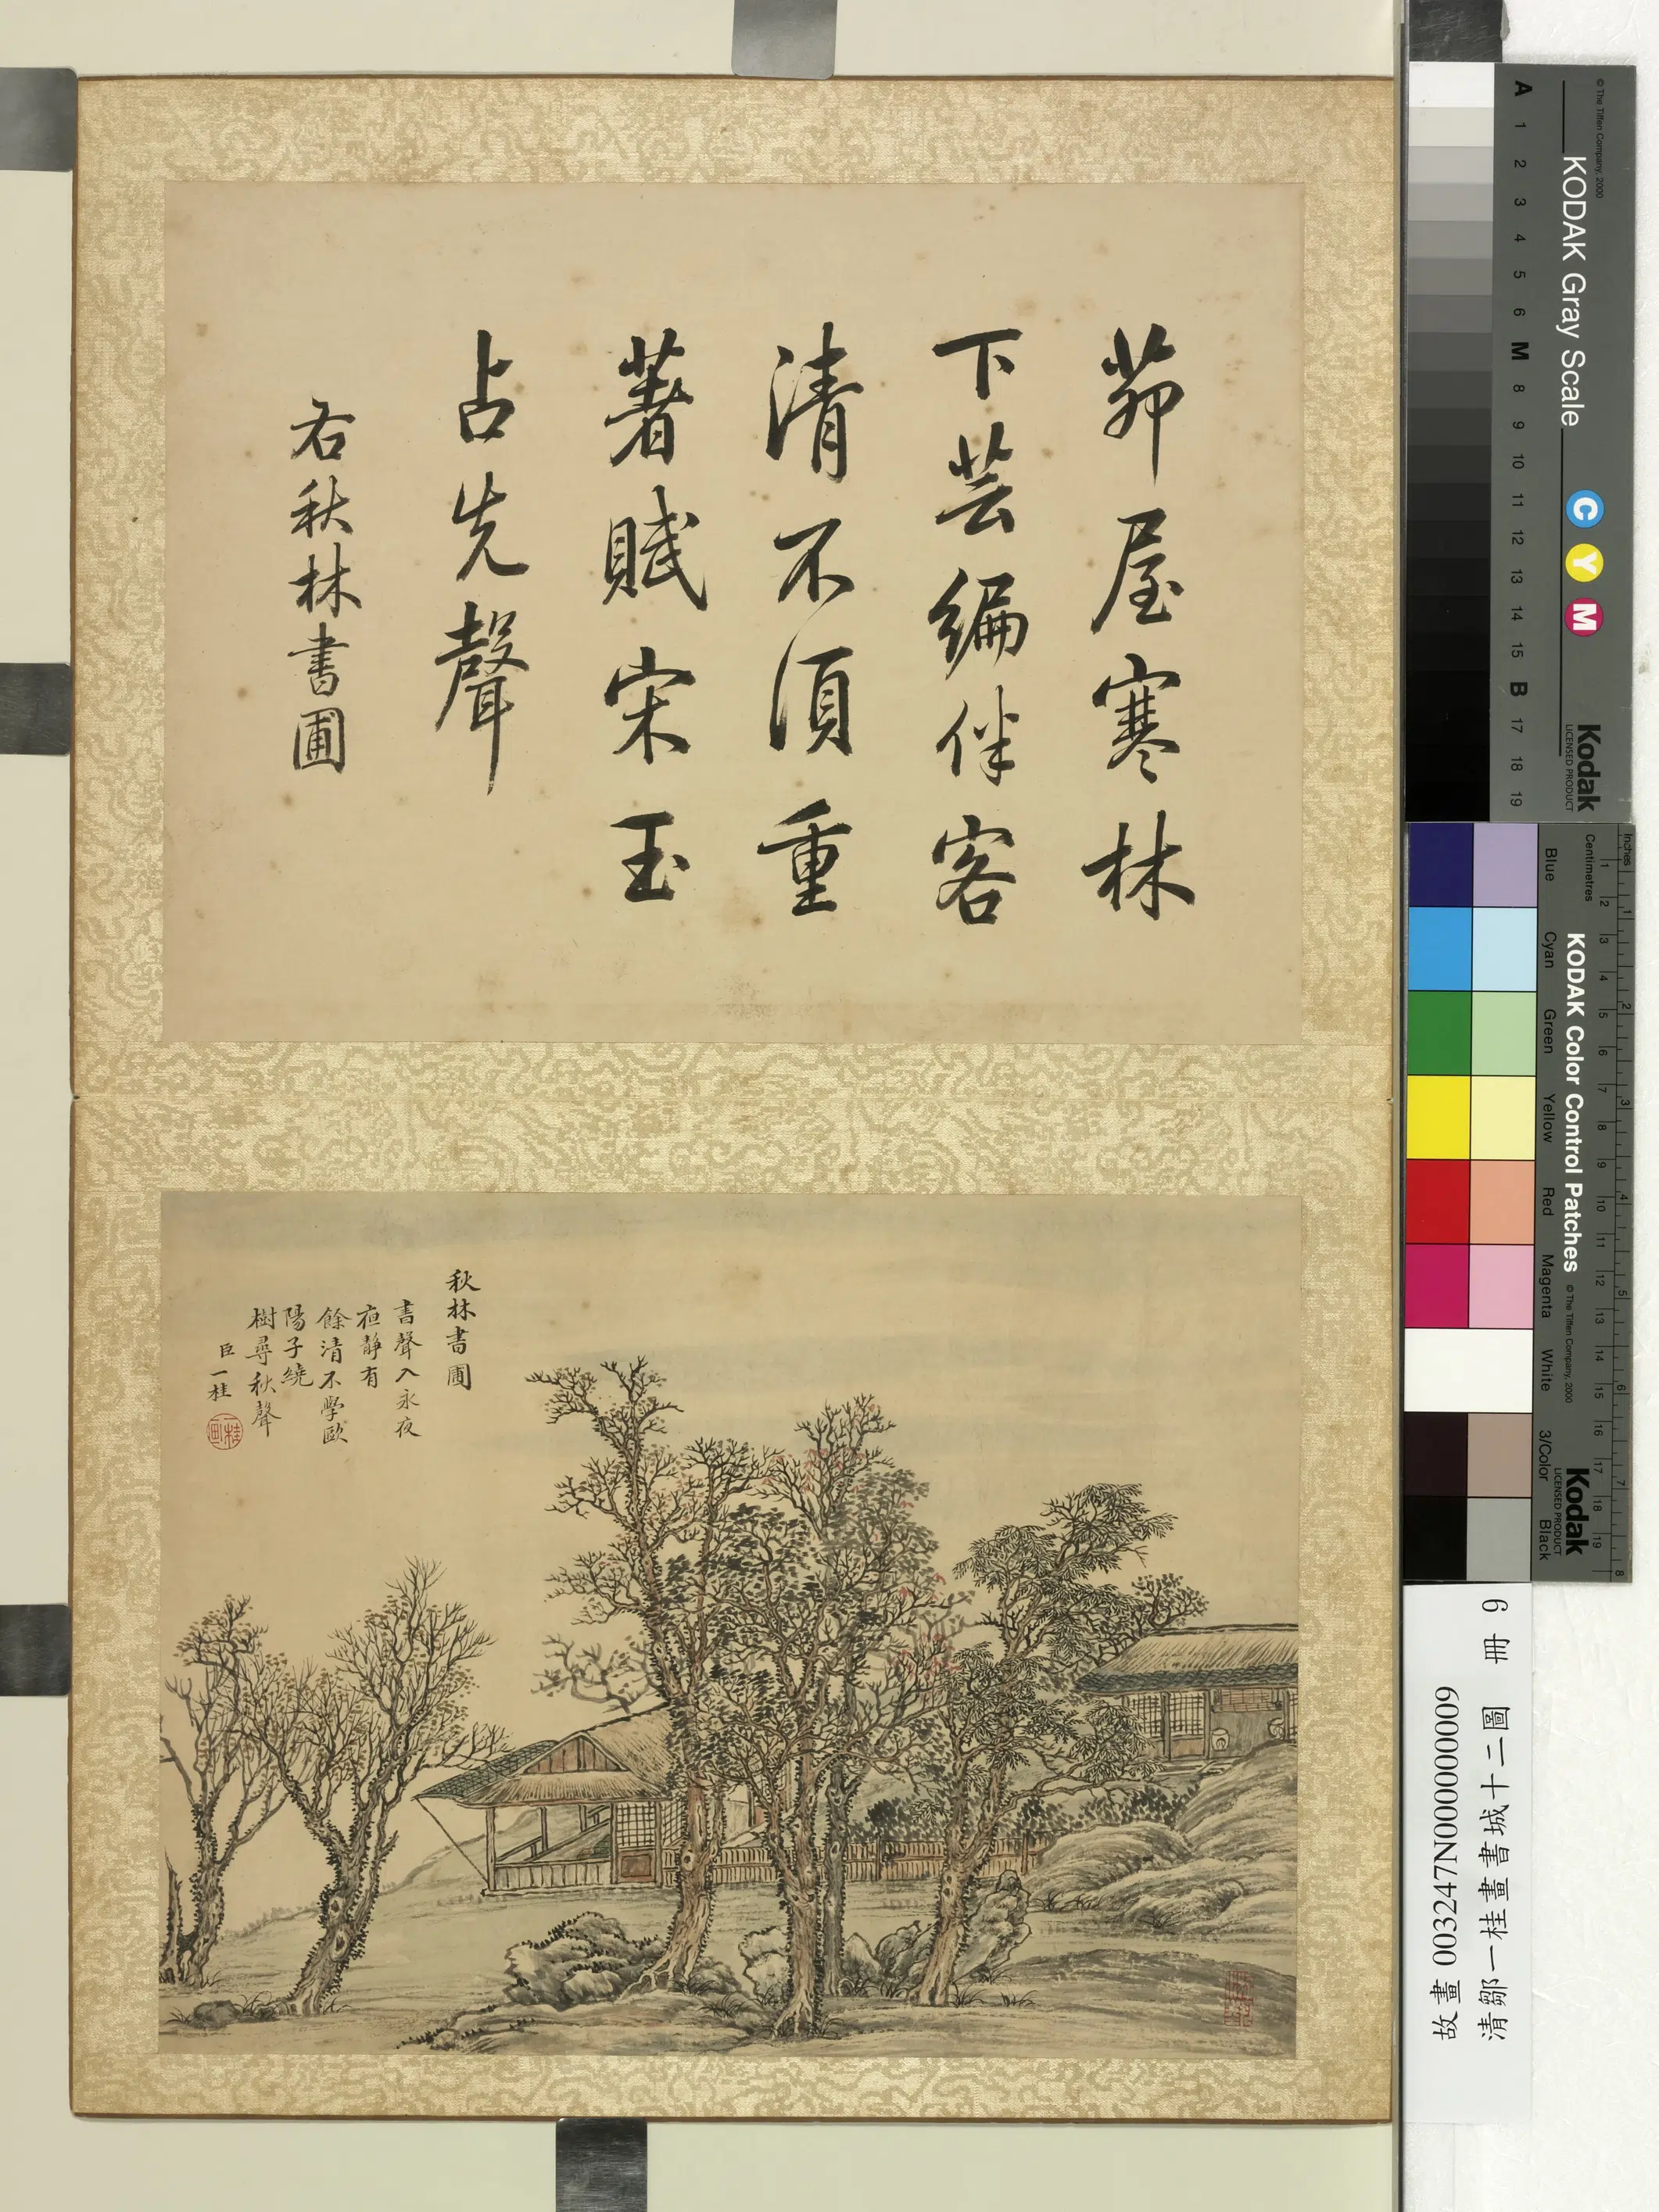 茆屋寒林
下芸編伴客
清不須重
著賦宋玉
占先聲
右秋林書圃
秋林書圃
書聲入永夜
夜靜有
餘清不學歐
陽子繞
樹尋秋聲
臣一桂
故畫 003247N000000009
清鄒一桂畫書城十二圖 冊 9
© The Tiffen Company, 2000
KODAK Gray Scale
C Y M
Kodak
LICENSED PRODUCT
A 1 2 3 4 5 6 M 8 9 10 11 12 13 14 15 B 17 18 19
Inches
Centimetres
KODAK Color Control Patches
© The Tiffen Company, 2000
Kodak
LICENSED PRODUCT
Blue Cyan Green Yellow Red Magenta White 3/Color Black
1 2 3 4 5 6 7 8
1 2 3 4 5 6 7 8 9 10 11 12 13 14 15 16 17 18 19